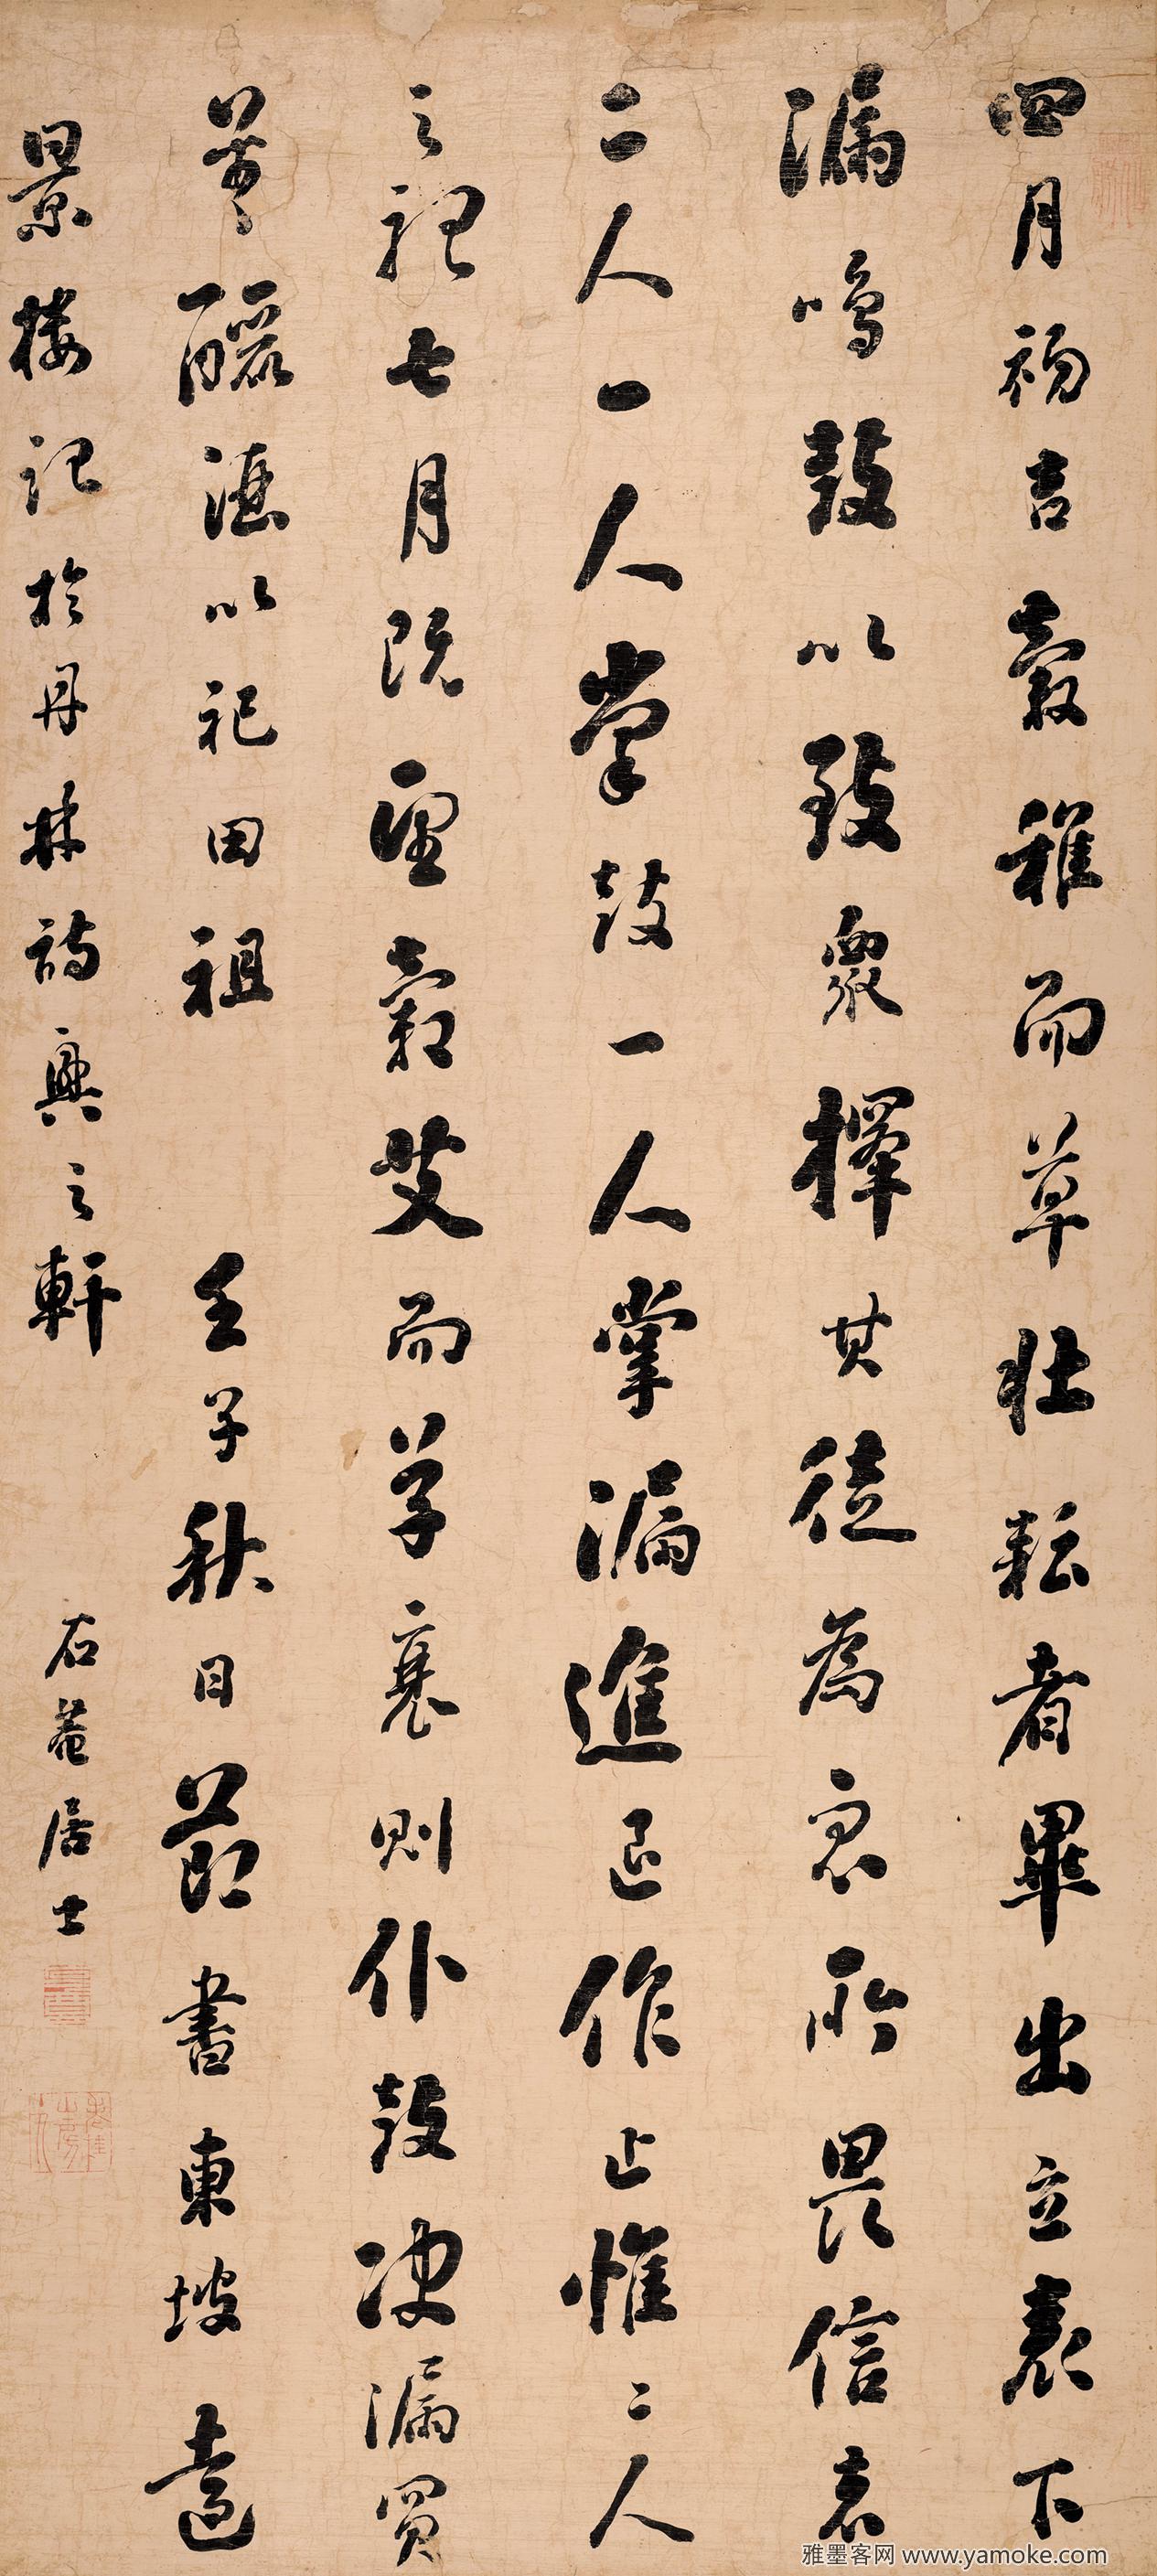 四月初吉穀稚而草壯耘者畢出立表下
漏鳴鼓以致眾擇其徒為眾所畏信者
二人一人掌鼓一人掌漏進退作止惟二人
之聽七月既望穀艾而草衰則仆鼓决漏買
釃酒以祀田祖 壬子秋日節書東坡遠
景樓記於丹林詩興之軒 石菴居士
雅墨客网 www.yamoke.com